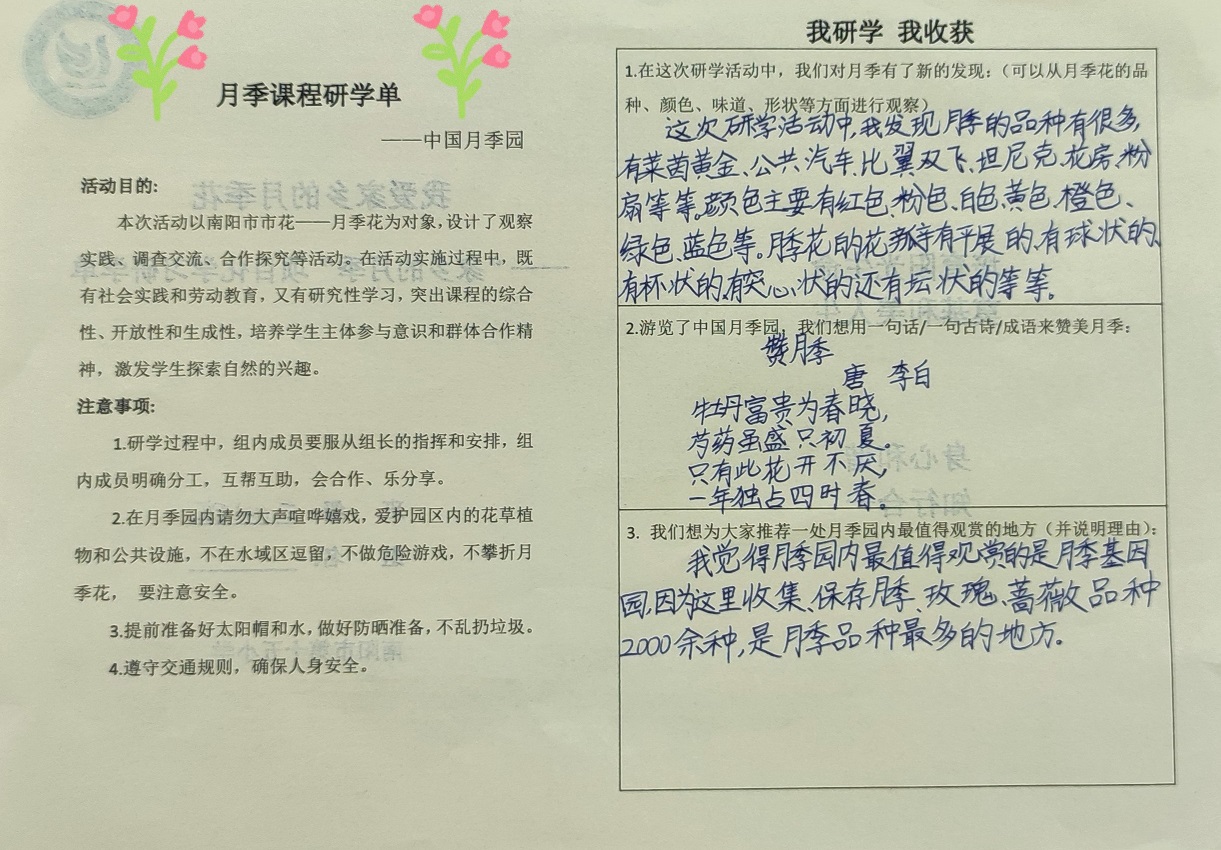 月季课程研学单
——中国月季园
活动目的:
本次活动以南阳市市花——月季花为对象，设计了观察
实践、调查交流、合作探究等活动。在活动实施过程中，既
有社会实践和劳动教育，又有研究性学习，突出课程的综合
性、开放性和生成性，培养学生主体参与意识和群体合作精
神，激发学生探索自然的兴趣。
注意事项:
1.研学过程中，组内成员要服从组长的指挥和安排，组
内成员明确分工，互帮互助，会合作、乐分享。
2.在月季园内请勿大声喧哗嬉戏，爱护园区内的花草植
物和公共设施，不在水域区逗留，不做危险游戏，不攀折月
季花， 要注意安全。
3.提前准备好太阳帽和水，做好防晒准备，不乱扔垃圾。
4.遵守交通规则，确保人身安全。
我研学 我收获
1.在这次研学活动中，我们对月季有了新的发现：（可以从月季花的品
种、颜色、味道、形状等方面进行观察）
这次研学活动中,我发现月季的品种有很多,
有莱茵黄金、公共汽车、比翼双飞、坦尼克、花房、粉
扇等等。颜色主要有红色、粉色、白色、黄色、橙色、
绿色、蓝色等。月季花的花有平展的、有球状的、
有杯状的、有突心状的还有坛状的等等。
2.游览了中国月季园，我们想用一句话/一句古诗/成语来赞美月季：
赞月季
唐 李白
牡丹富贵为春晓,
芍药虽盛只初夏。
只有此花开不厌,
一年独占四时春。
3. 我们想为大家推荐一处月季园内最值得观赏的地方（并说明理由）：
我觉得月季园内最值得观赏的是月季基因
园,因为这里收集、保存月季、玫瑰、蔷薇品种
2000余种,是月季品种最多的地方。